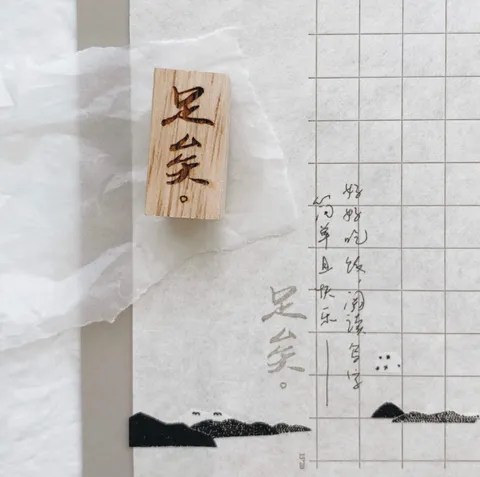 足矣。
好好吃饭，阅读写字
简单且快乐——
足矣。